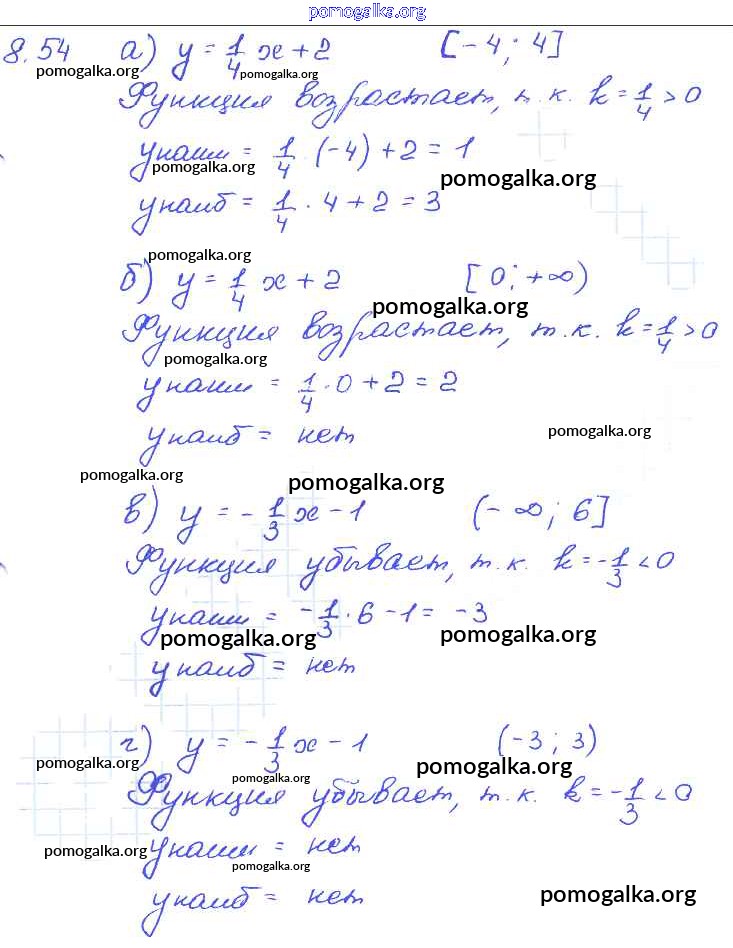 pomogalka.org
8.54 а) y = 1/4 x + 2 [-4; 4]
pomogalka.org pomogalka.org
Функция возрастает, т.к. k = 1/4 > 0
yнаим = 1/4 · (-4) + 2 = 1
pomogalka.org pomogalka.org
yнаиб = 1/4 · 4 + 2 = 3
pomogalka.org
б) y = 1/4 x + 2 [0; +∞)
pomogalka.org
Функция возрастает, т.к. k = 1/4 > 0
pomogalka.org
yнаим = 1/4 · 0 + 2 = 2
yнаиб = нет pomogalka.org
pomogalka.org pomogalka.org
в) y = -1/3 x - 1 (-∞; 6]
Функция убывает, т.к. k = -1/3 < 0
yнаим = -1/3 · 6 - 1 = -3
pomogalka.org pomogalka.org
yнаиб = нет
г) y = -1/3 x - 1 (-3; 3)
pomogalka.org pomogalka.org pomogalka.org
Функция убывает, т.к. k = -1/3 < 0
pomogalka.org yнаим = нет
pomogalka.org
yнаиб = нет pomogalka.org